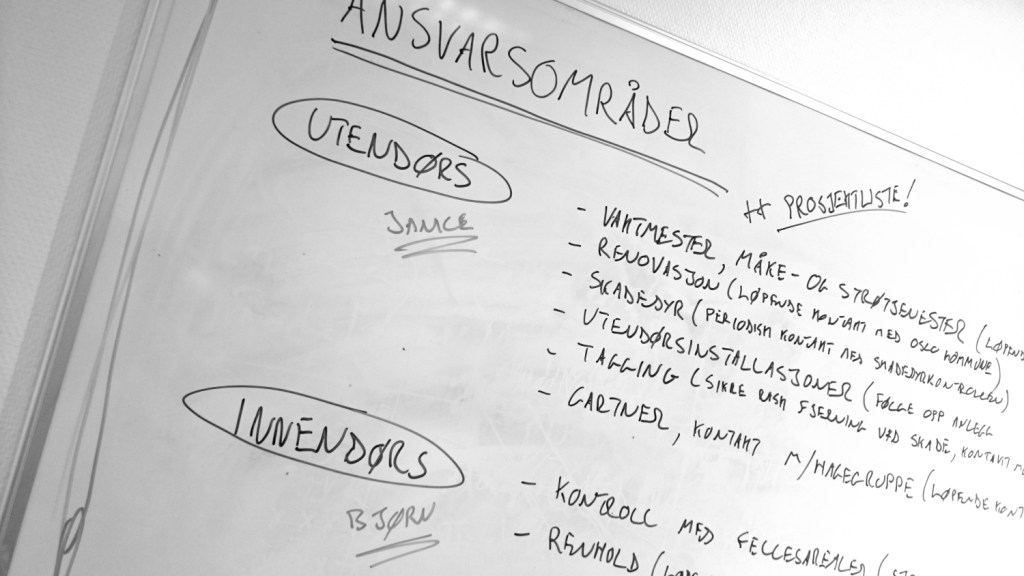 ANSVARSOMRÅDER
PROSJEKTLISTE!
UTENDØRS
JANICE
- VAKTMESTER, MÅKE- OG STRØTJENESTER (LØPEND
- RENOVASJON (LØPENDE KONTAKT MED OSLO KOMMUNE)
- SKADEDYR (PERIODISK KONTAKT MED SKADEDYRKONTROLLEN)
- UTENDØRSINSTALLASJONER (FØLGE OPP ANLEGG
- TAGGING (SIKRE RASK FJERNING VED SKADE, KONTAKT M
- GARTNER, KONTAKT M/HAGEGRUPPE (LØPENDE KONT
INNENDØRS
BJØRN
- KONTROLL MED FELLESAREALER (
- RENHOLD (LØPE